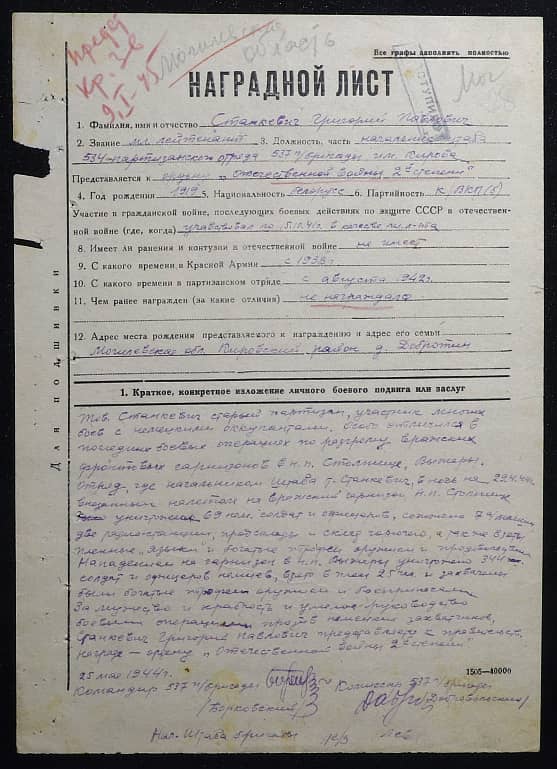 предс
кр. зв
9.I-45
Могилевская
область
Все графы заполнять полностью
НАГРАДНОЙ ЛИСТ
1. Фамилия, имя и отчество Станкевич Григорий Павлович
2. Звание мл. лейтенант 3. Должность, часть начальник штаба
534-партизанского отряда 537 п/бригады им. Кирова
Представляется к ордену „Отечественной войны 2й степени"
4. Год рождения 1919 5. Национальность белорусс 6. Партийность к ВКП(б)
Участие в гражданской войне, последующих боевых действиях по защите СССР в отечествен-
ной войне (где, когда) участвовал по 15.10.41г. в
8. Имеет ли ранения и контузии в отечественной войне не имеет
9. С какого времени в Красной Армии с 1938г
10. С какого времени в партизанском отряде с августа 1942г.
11. Чем ранее награжден (за какие отличия) не награждался
12. Адрес места рождения представляемого к награждению и адрес его семьи
Могилевская обл. Кировский район д. Добротин
Для подшивки
1. Краткое, конкретное изложение личного боевого подвига или заслуг
Тов. Станкевич старый партизан, участник многих
боев с немецкими оккупантами. Особо отличился в
последних боевых операциях по разгрому вражеских
фронтовых гарнизонов в н.п. Столпище, Вылеры.
Отряд, где начальником штаба т. Станкевич, в ночь на 29.4.44г
внезапным налетом на вражеский гарнизон н.п. Столпище
уничтожил 69 нем. солдат и офицеров, сожжено
две радиостанции, продсклады и склад горючего, а также взяты
пленные, языки и богатые трофеи оружием и продовольствием
Нападением на гарнизон в н.п. Вылеры уничтожено 344
солдат и офицеров немцев, взято в плен 25 чел. и захвачены
были богатые трофеи оружием и боеприпасами
За мужество и храбрость и умелое руководство
боевыми операциями против немецких захватчиков,
Станкевич Григорий Павлович представляется к правительств.
награде – ордену „Отечественной войны 2й степени"
25 мая 1944г.
1505-40000
Командир 537 п/бригады
Комиссар 537 п/бригады
/Борковский/
Нач. Штаба бригады